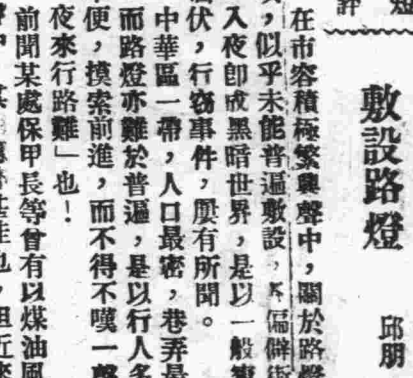 短評
敷設路燈
邱朋
在市容積極繁興聲中，關於路燈
，似乎未能普遍敷設，尤偏僻街
入夜卽成黑暗世界，是以一般
伏，行窃事件，屢有所聞。
中華區一帶，人口最密，巷弄是
而路燈亦難於普遍，是以行人多
便，摸索前進，而不得不嘆一聲
夜來行路難」也！
前聞某處保甲長等曾有以煤油風